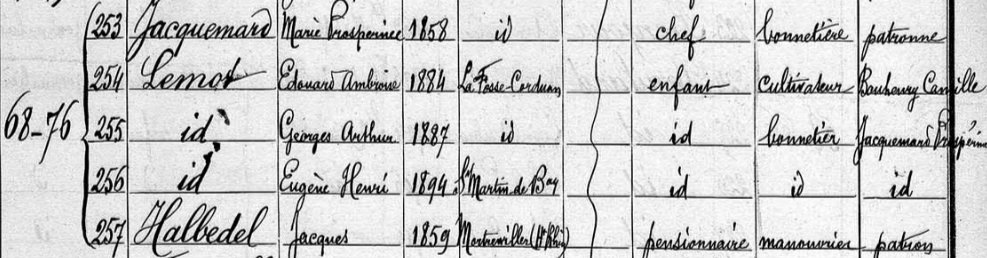 253 Jacquemard Marie Prosperinee 1858 id chef bonnetière patronne
254 Lemot Edouard Ambroise 1884 La Fosse-Corduan enfant cultivateur Bauheury Camille
68-76 255 id Georges Arthur 1887 id id bonnetier Jacquemard Prospérine
256 id Eugène Henri 1894 St Martin de Bay id id id
257 Halbedel Jacques 1859 (Ht Rhin) pensionnaire manouvrier patron